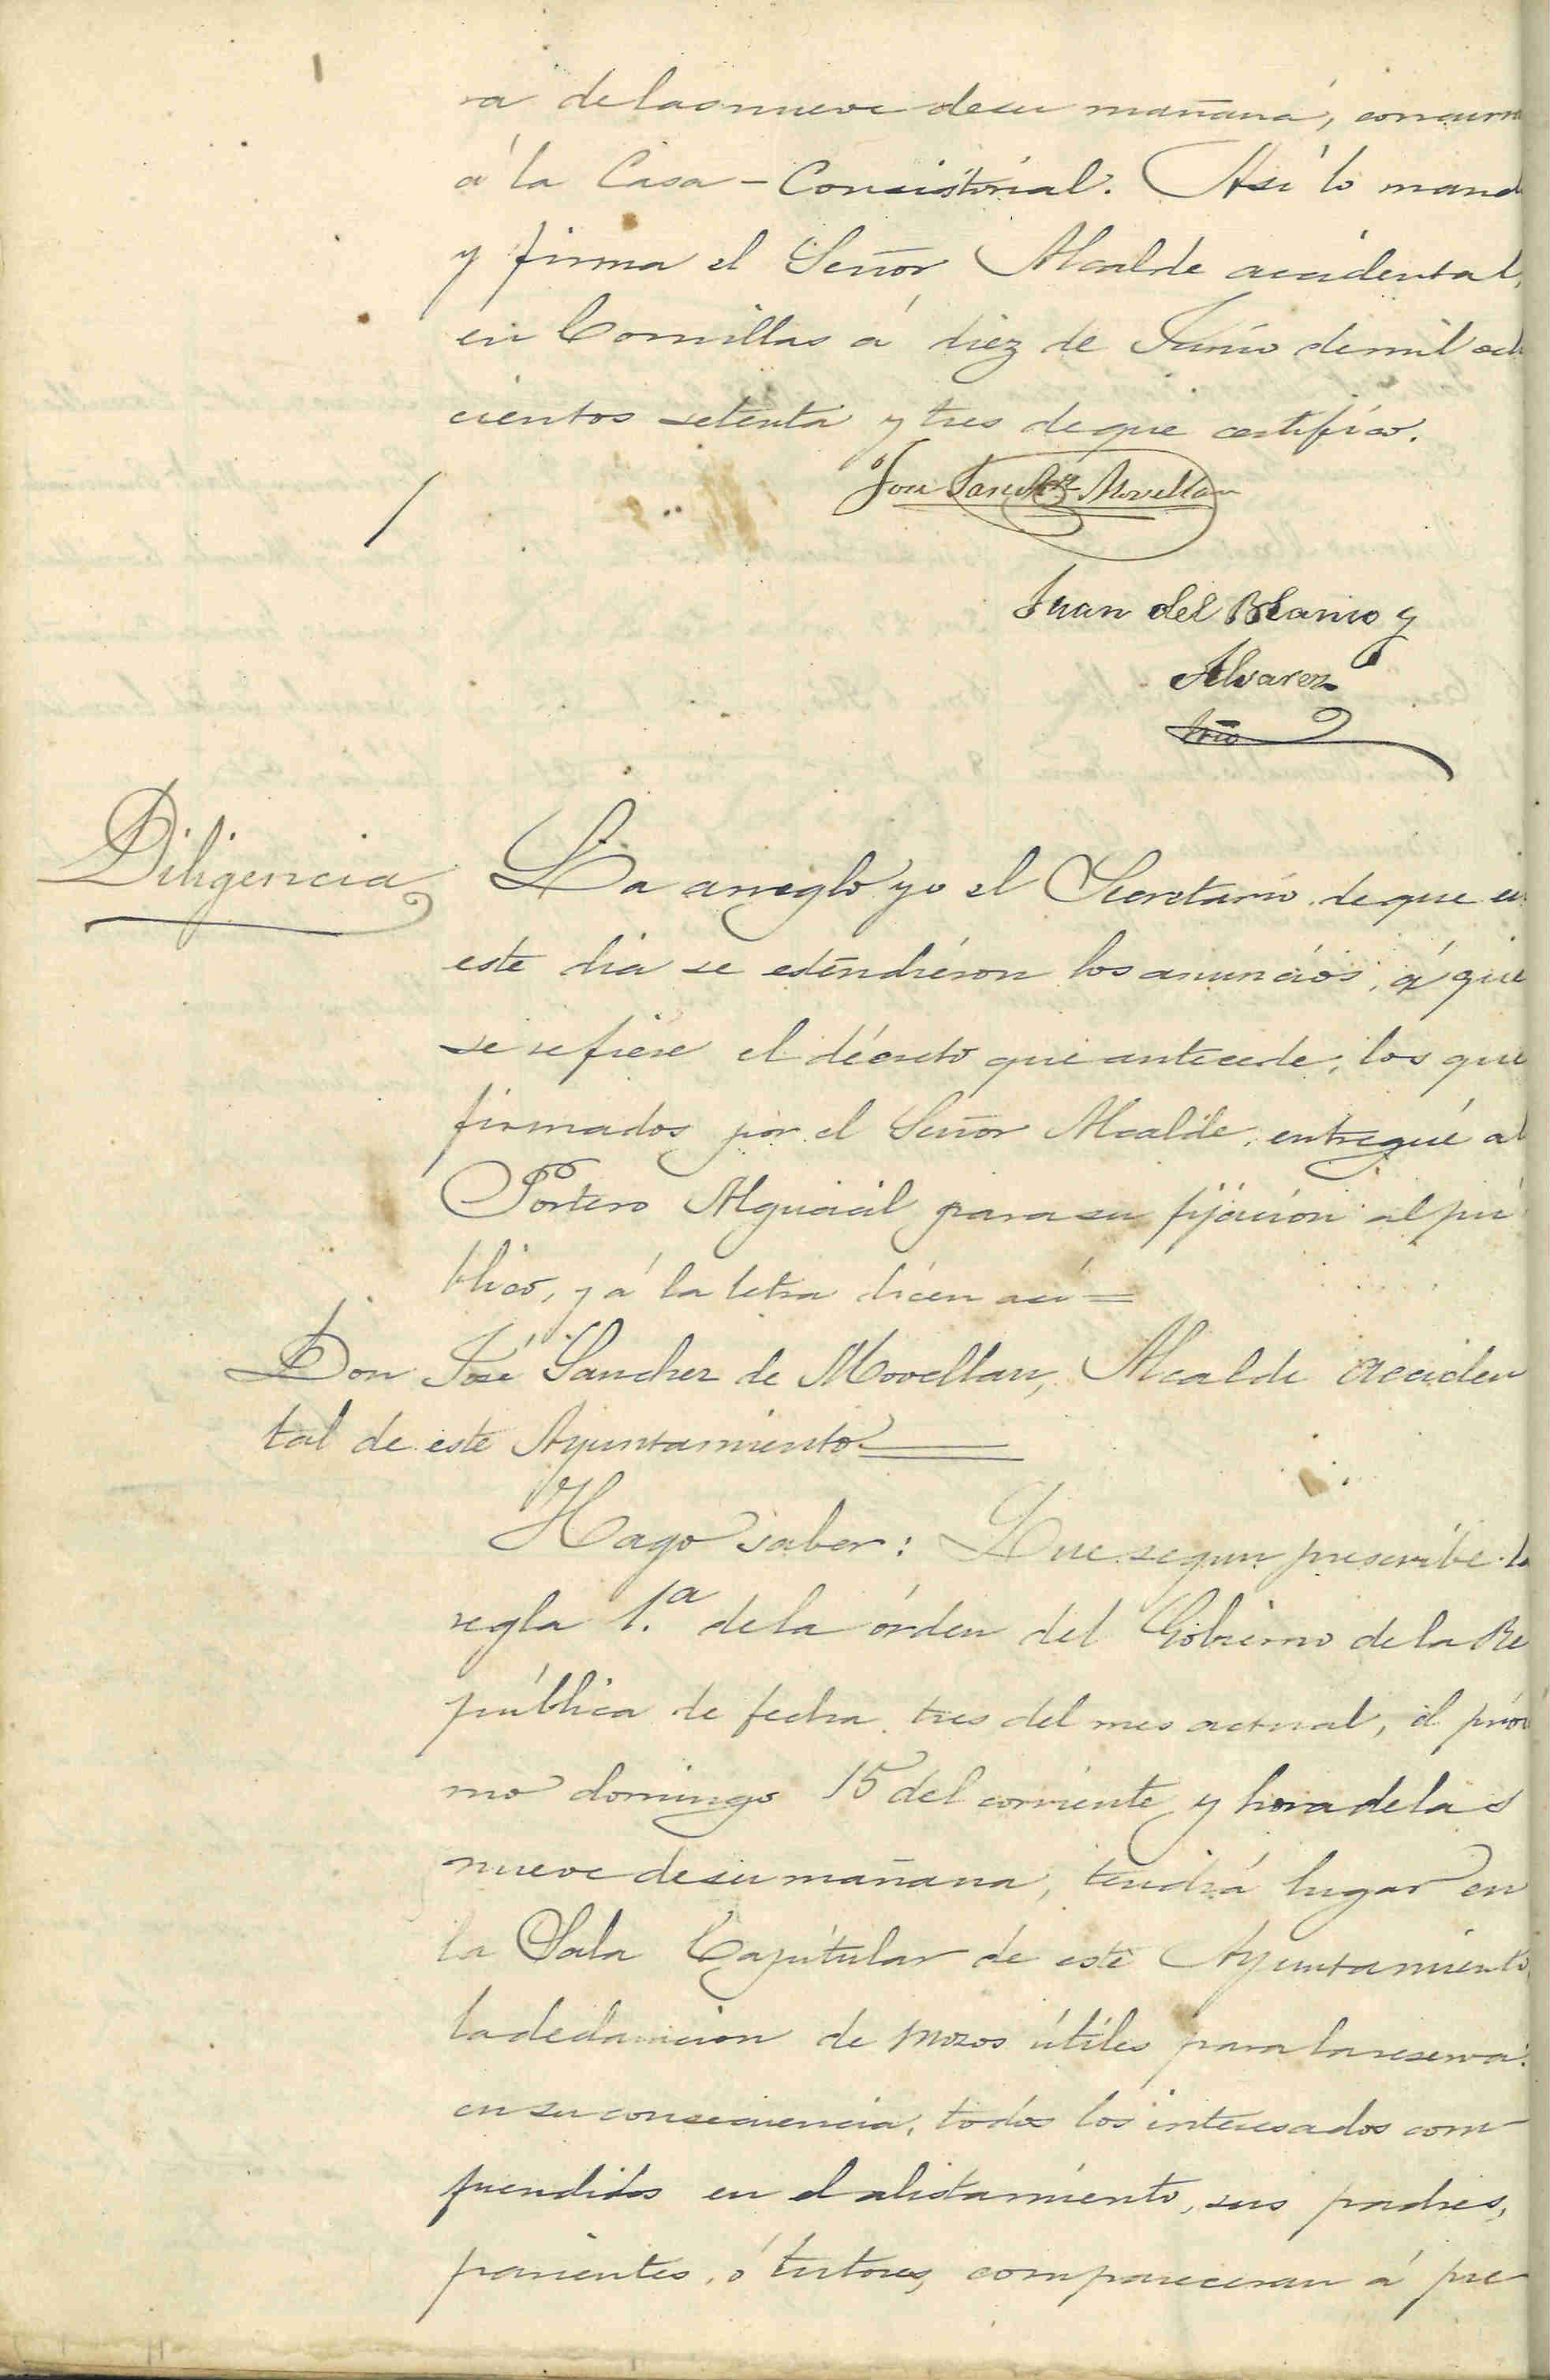 ra de las nueve de su mañana, concurra
á la Casa-Consistorial. Así lo mand
y firma el Señor Alcalde accidental,
en Comillas á diez de Junio de mil ocho
cientos setenta y tres de que certifico.
José Sanchez Movellan
Juan del Blanco y
Alvarez
Srio
Diligencia
La arreglo yo el Secretario de que en
este dia se estendiéron los anuncios, á que
se refiere el décreto que antecede, los que
firmados por el Señor Alcalde, entregué al
Portero Alguacil para su fijación al pú
blico, y á la letra dicen así=
Don José Sanchez de Movellan, Alcalde acciden
tal de este Ayuntamiento
Hago saber: Que segun prescribe la
regla 1.a de la órden del Gobierno de la Re
pública de fecha tres del mes actual, el próxi
mo domingo 15 del corriente y hora de las
nueve de su mañana, tendrá lugar en
la Sala Capitular de este Ayuntamiento
la declaracion de mozos útiles para la reserva:
en su consecuencia, todos los interesados com-
prendidos en el alistamiento, sus padres,
parientes, ó tutores, compareceran á pre-